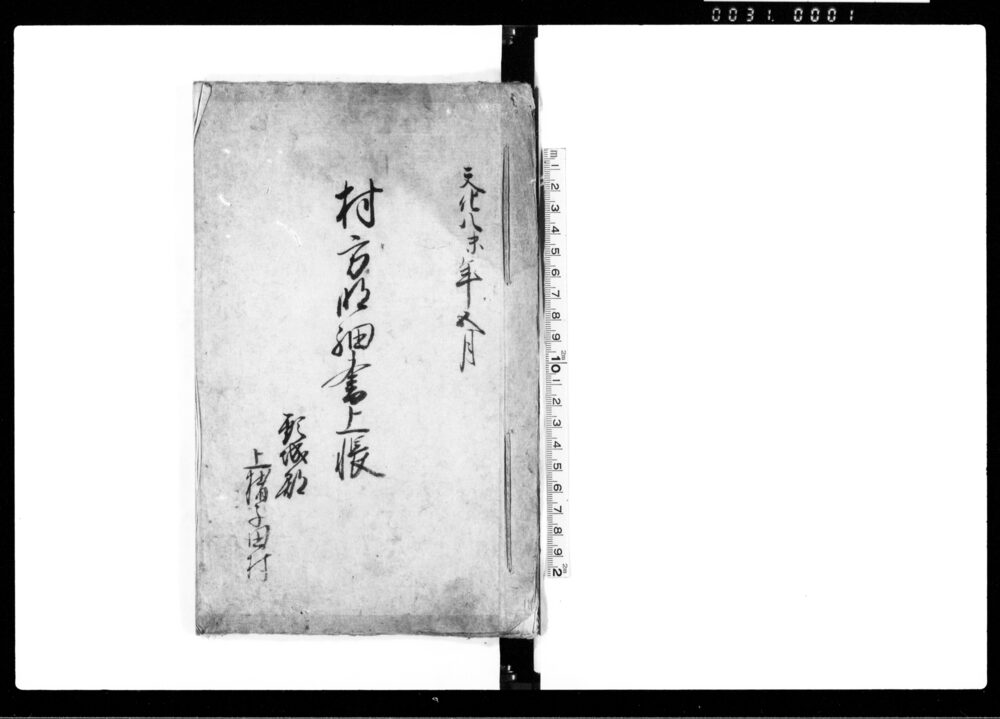 0031. 0001
文化八未年五月
村方明細書上帳
頸城郡
上増子田村
m 1 2 3 4 5 6 7 8 9 10 1 2 3 4 5 6 7 8 9 2